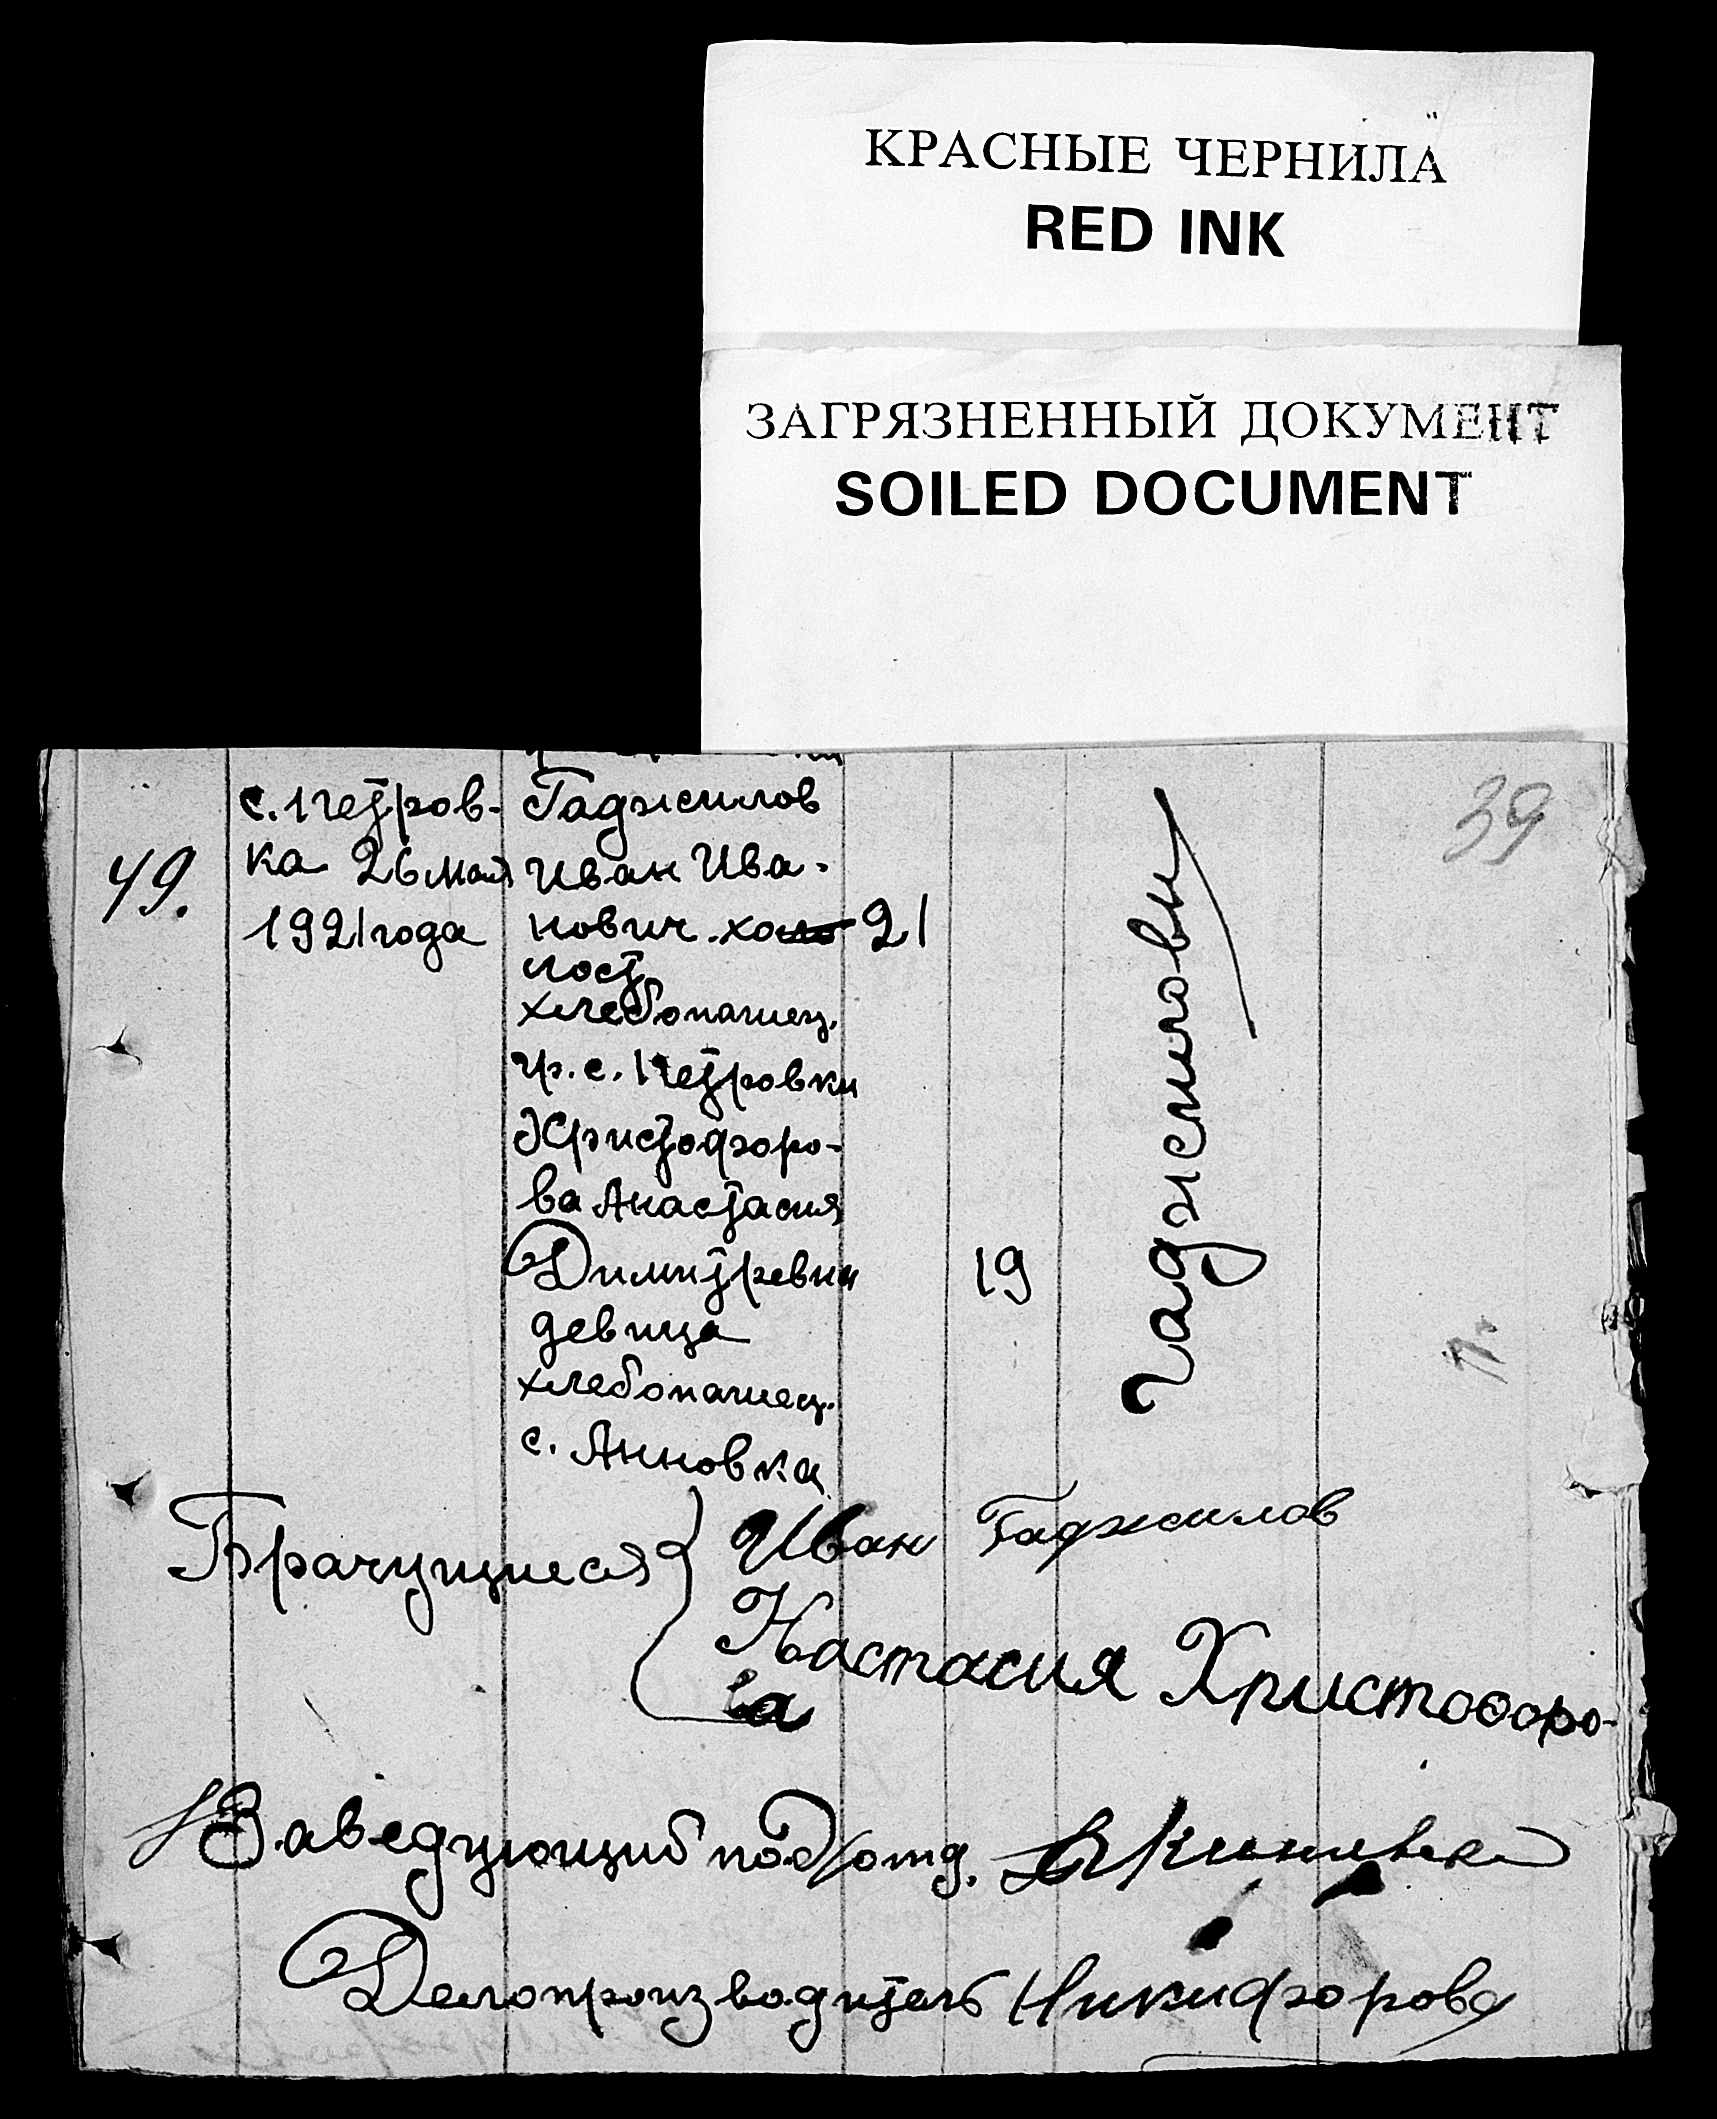 КРАСНЫЕ ЧЕРНИЛА
RED INK
ЗАГРЯЗНЕННЫЙ ДОКУМЕНТ
SOILED DOCUMENT
39
49.
с. Петров-
ка 26 мая
1921 года
Гаджилов
Иван Ива-
нович. холо
лост
хлебопашец.
гр. с. Петровки
Христофоро-
ва Анастасия
Димитревна
девица
хлебопашец.
с. Анновка
21
19
Гаджиловы
Брачущиеся
Иван Гаджилов
Настасия Христофоро-
ва
Заведующий под/отд.
Делопроизводитель Никифорова